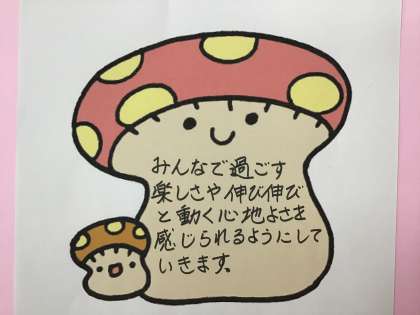 みんなで過ごす
楽しさや伸び伸び
と動く心地よさを
感じられるようにして
いきます。